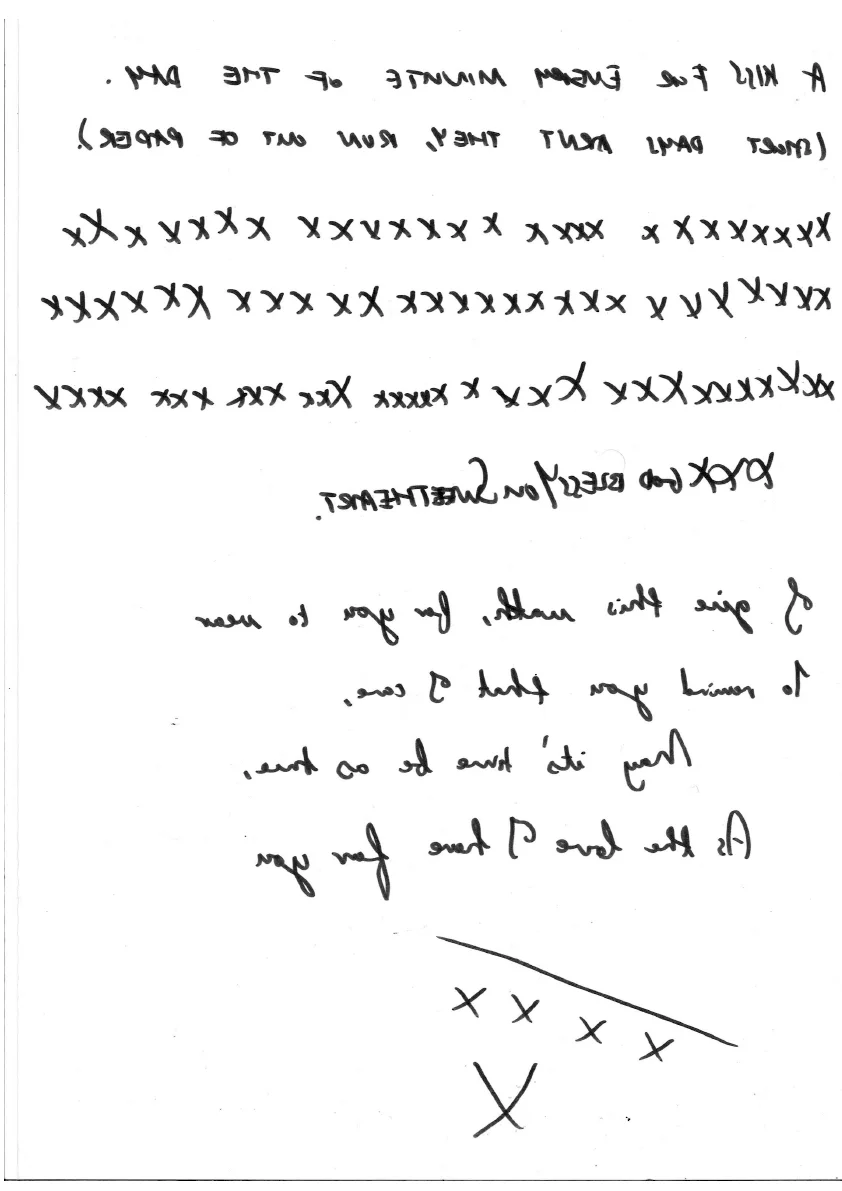 A KISS FOR EVERY MINUTE OF THE DAY .
(SHORT DAYS ARNT THEY, RUN OUT OF PAPER)
XXXXXXXX X XXXX X XXXXXXXX X XXXXX X XX
XXXXXXXX X XXXXXXXXXX XXX XXXX XX XXXXX
XXXXXXXXXXXX XXXX X XXXXX XXX XXX XXX XXXX
XXX GOD BLESS YOU SWEETHEART.
I give this watch, for you to wear
To remind you that I care,
May it's time be as true,
As the love I have for you
X X X X
X